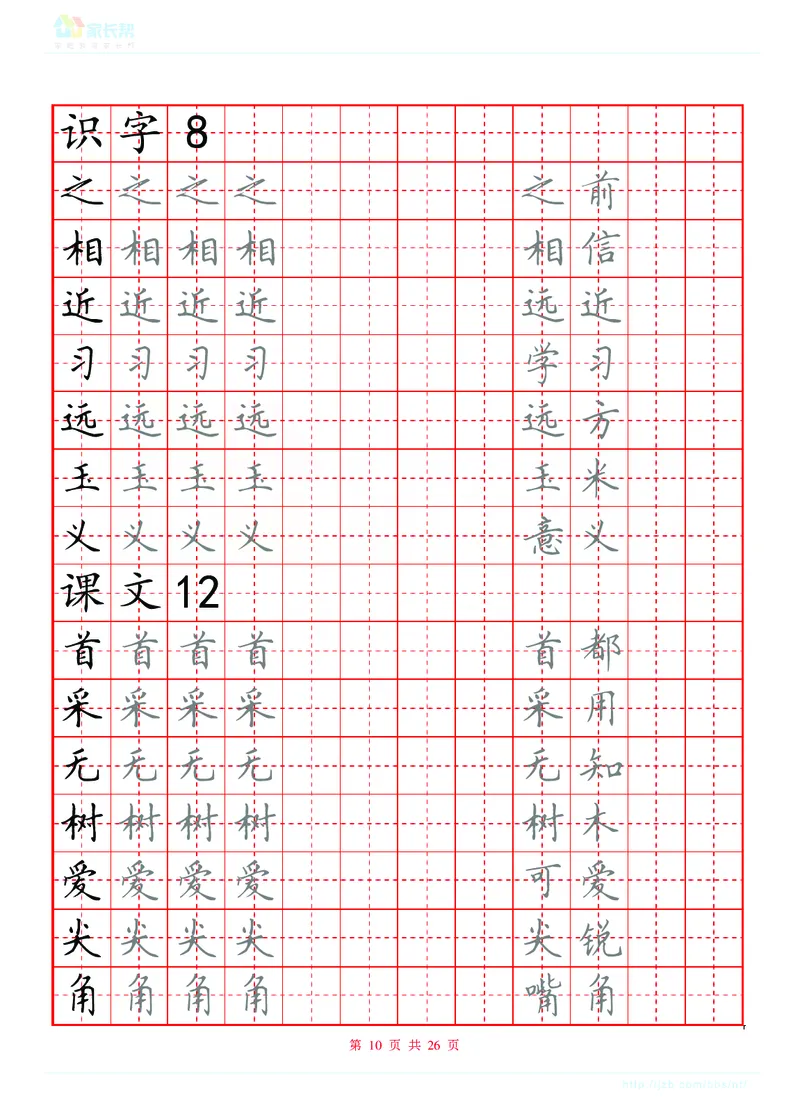 家长帮
识字8
之之之之 之前
相相相相 相信
近近近近 远近
习习习习 学习
远远远远 远方
玉玉玉玉 玉米
义义义义 意义
课文12
首首首首 首都
采采采采 采用
无无无无 无知
树树树树 树木
爱爱爱爱 可爱
尖尖尖尖 尖锐
角角角角 嘴角
第 10 页 共 26 页